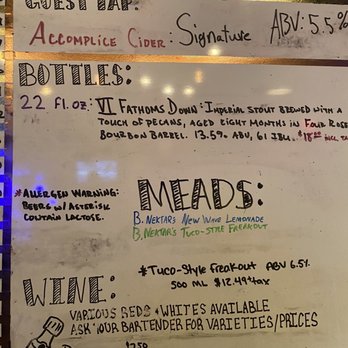 GUEST TAP:
ACCOMPLICE CIDER: Signature ABV: 5.5%
BOTTLES:
22 fl. oz: VI FATHOMS DOWN: IMPERIAL STOUT BREWED WITH A
TOUCH OF PECANS, AGED EIGHT MONTHS IN FOUR ROSE
BOURBON BARREL. 13.5% ABV, 61 IBU.
*ALLERGEN WARNING:
BEERS W/ ASTERISK
CONTAIN LACTOSE.
MEADS:
B. NEKTAR'S NEW WAVE LEMONADE
B. NEKTAR'S TUCO-STYLE FREAKOUT
*TUCO-STYLE FREAKOUT ABV 6.5%
500 ML $12.49+tax
WINE:
VARIOUS REDS + WHITES AVAILABLE
ASK YOUR BARTENDER FOR VARIETIES/PRICES